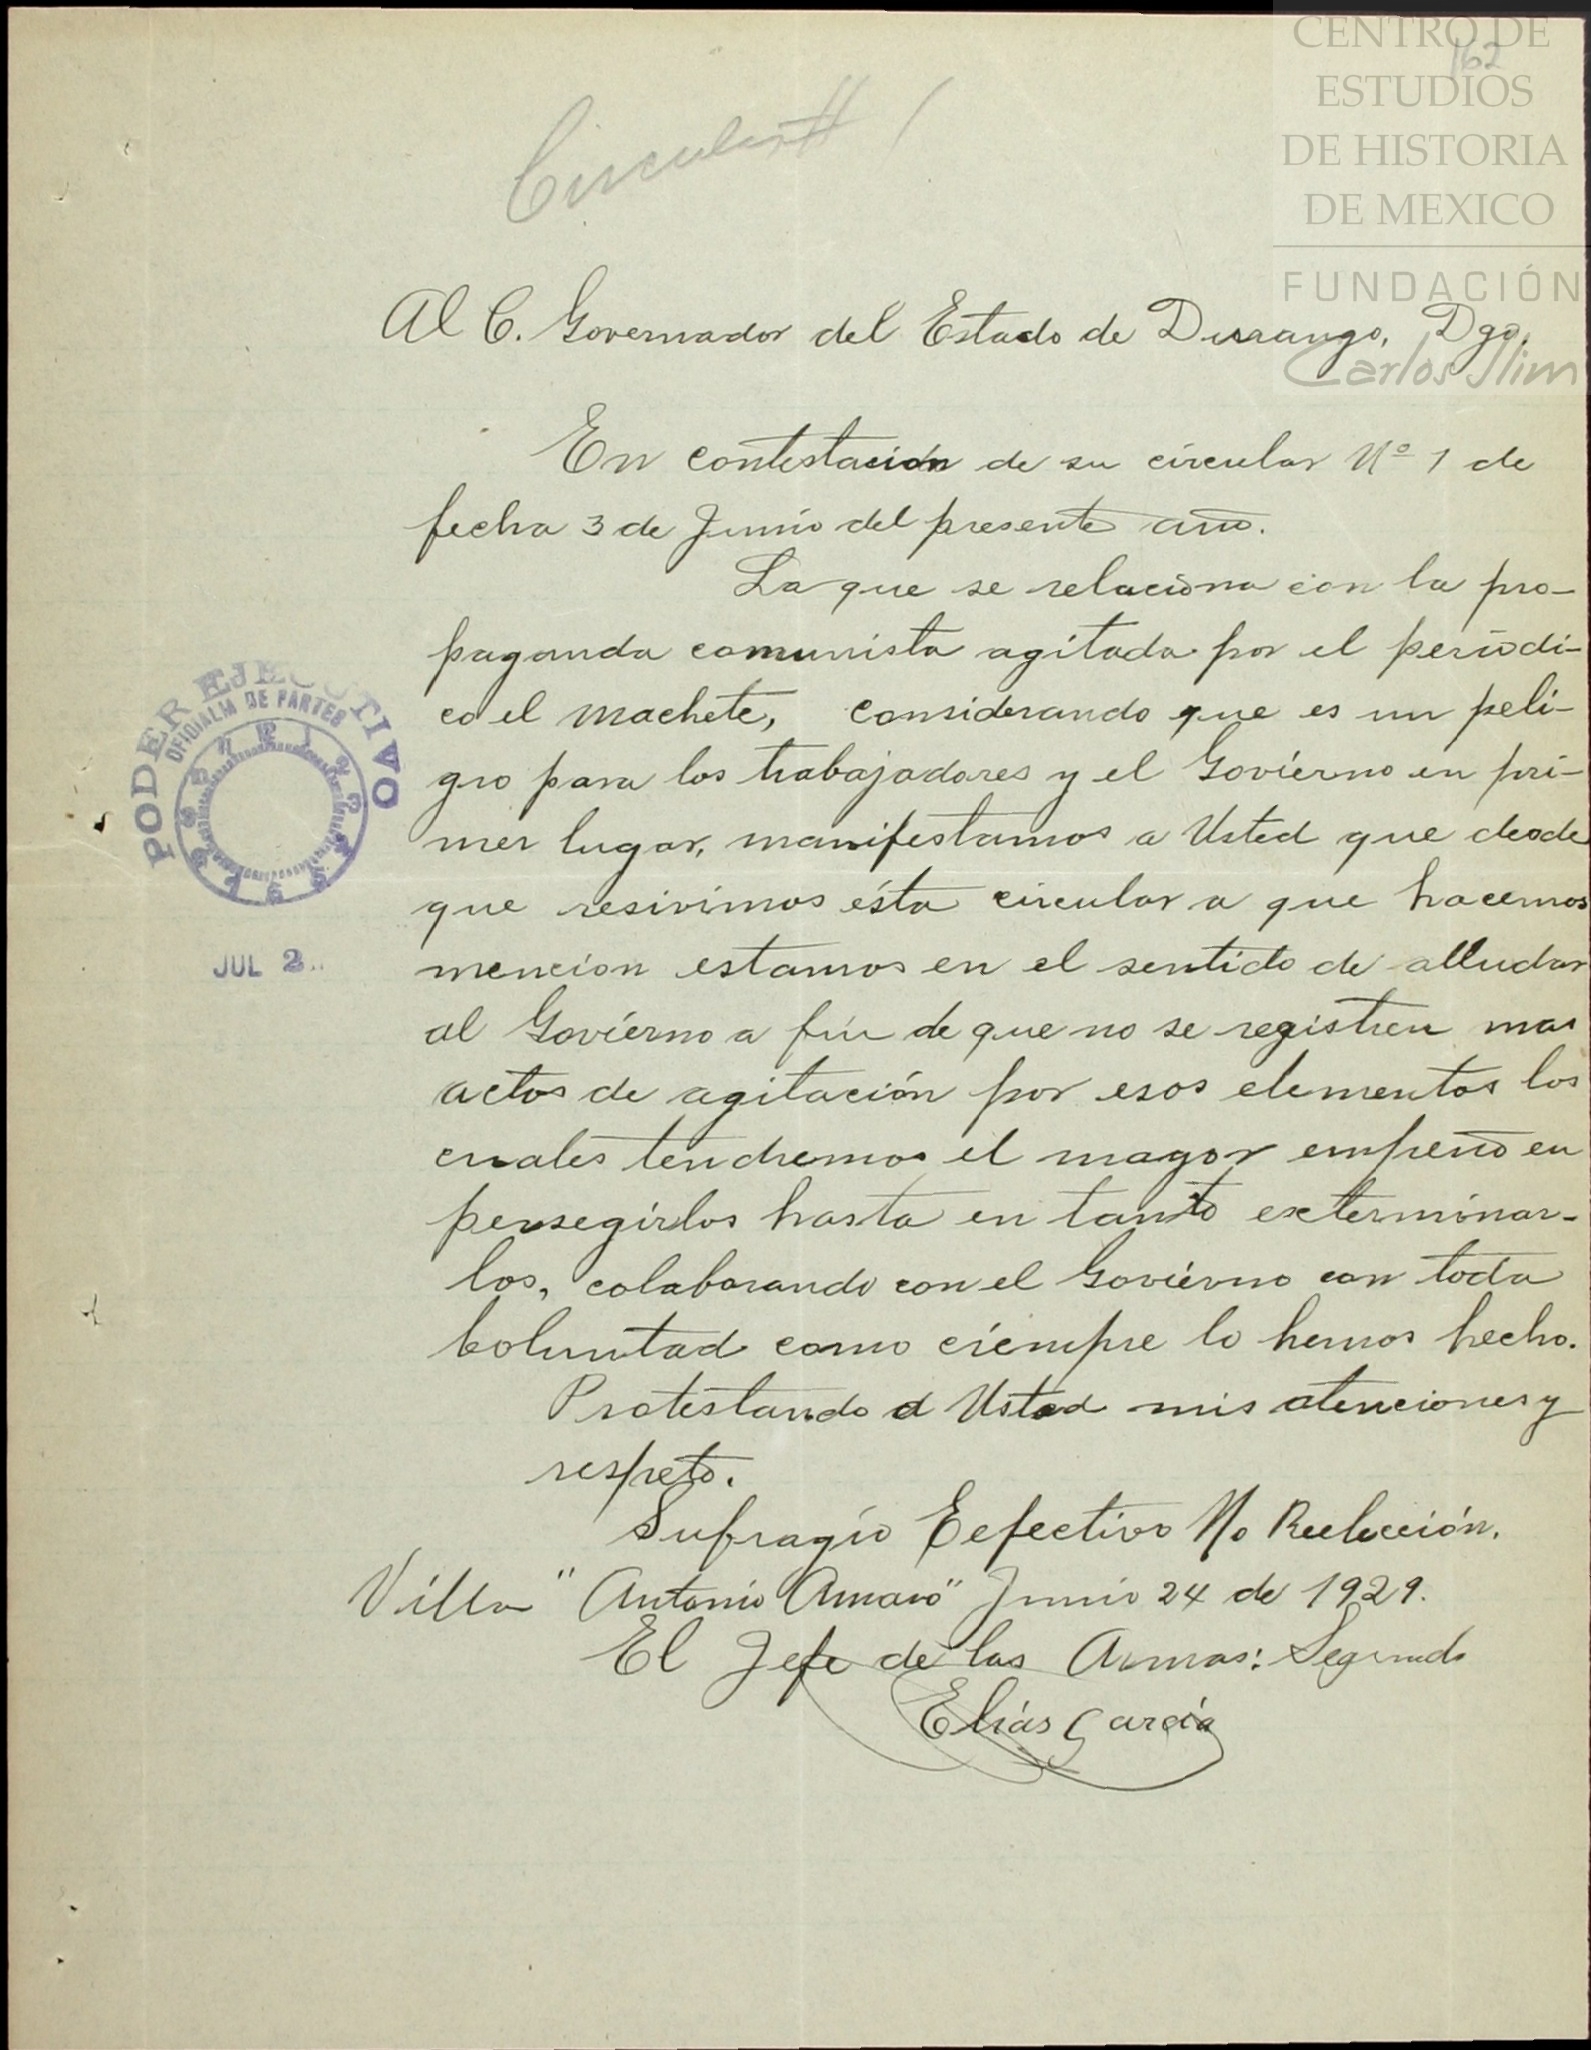 CENTRO DE
ESTUDIOS
DE HISTORIA
DE MEXICO
FUNDACIÓN
Carlos Slim
162
Circular # 1
Al C. Governador del Estado de Durango, Dgo.
En contestación de su circular Nº 1 de
fecha 3 de Junio del presente año.
La que se relaciona con la pro-
paganda comunista agitada por el periodi-
co el machete, considerando que es un peli-
gro para los trabajadores y el Govierno en pri-
mer lugar, manifestamos a Usted que desde
que resivimos ésta circular a que hacemos
mencion estamos en el sentido de alludar
al Govierno a fin de que no se registren mas
actos de agitación por esos elementos los
cuales tendremos el mayor empeño en
persegirlos hasta en tanto exterminar-
los, colaborando con el Govierno con toda
boluntad como ciempre lo hemos hecho.
Protestando a Usted mis atenciones y
respeto.
Sufragio Eefectivo No Reelección.
Villa "Antonio Amaro" Junio 24 de 1929.
El Jefe de las Armas: Segundo
Elías García
PODER EJECUTIVO
OFICIALIA DE PARTES
JUL 2